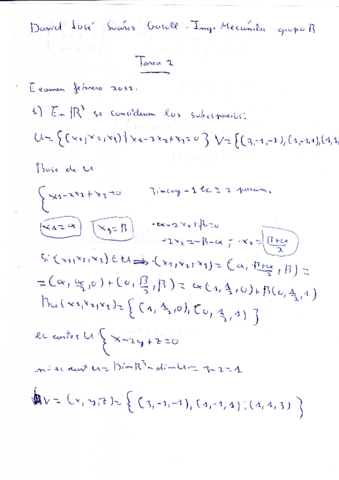 David José Suárez Gusell - Ing. Mecánica grupo B
Tarea 2
Examen febrero 2012.
1) En ℝ³ se consideran los subespacios:
U = {(x₁, x₂, x₃) | x₁ - 2x₂ + x₃ = 0} V = {(3,-1,-1), (1,-1,1), (1,1,
Base de U
{x₁ - 2x₂ + x₃ = 0 3 incog - 1 ec = 2 param.
x₁ = α x₃ = β · α - 2x₂ + β = 0
-2x₂ = -β - α ; · x₂ = (β+α)/2
Si (x₁, x₂, x₃) ∈ U ⇒ (x₁, x₂, x₃) = (α, (β+α)/2, β) =
= (α, α/2, 0) + (0, β/2, β) = α(1, 1/2, 0) + β(0, 1/2, 1)
Bu(x₁, x₂, x₃) = {(1, 1/2, 0), (0, 1/2, 1)}
ec cartes U {x - 2y + z = 0
nº ec cart U = Dim ℝ³ - dim U = 3 - 2 = 1
V = (x, y, z) = {(3,-1,-1), (1,-1,1); (1,1,3)}